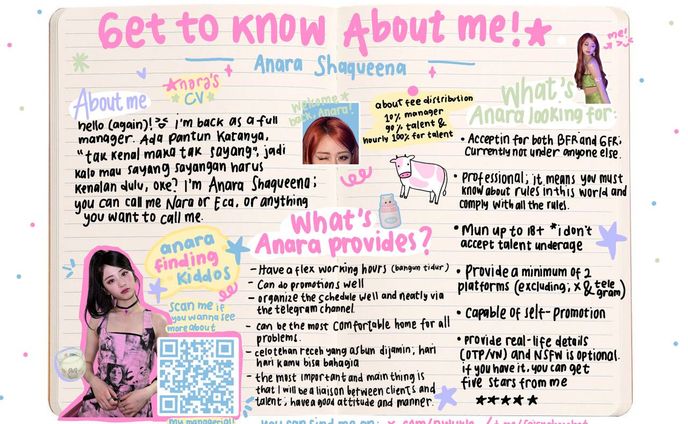 Get to Know About me!
me!
Anara Shaqueena
Anara's
CV
About me
hello (again)! I'm back as a full
manager. Ada pantun katanya,
"tak kenal maka tak sayang", jadi
kalo mau sayang sayangan harus
kenalan dulu, oke? I'm Anara Shaqueena;
you can call me Nara or Eca, or anything
you want to call me.
Welcome
back, Anara!
about fee distribution
10% manager
90% talent &
hourly 100% for talent
What's
Anara looking for:
• Acceptin for both BFR and GFR;
currently not under anyone else.
• Professional; it means you must
know about rules in this world and
comply with all the rules.
• Mun up to 18+ *i don't
accept talent underage
• Provide a minimum of 2
platforms (excluding; X & tele
gram)
• capable of self-promotion
• provide real-life details
(OTP/VN) and NSFW is optional.
if you have it, you can get
five stars from me
★★★★★
anara
finding
kiddos
scan me if
you wanna see
more about
my managerial!
What's
Anara provides?
- Have a flex working hours (bangun tidur)
- Can do promotions well
- organize the schedule well and neatly via
the telegram channel.
- can be the most comfortable home for all
problems.
- celotehan receh yang asbun dijamin, hari
hari kamu bisa bahagia
- the most important and main thing is
that I will be a liaison between clients and
talent, have a good attitude and manner.
you can find me on: